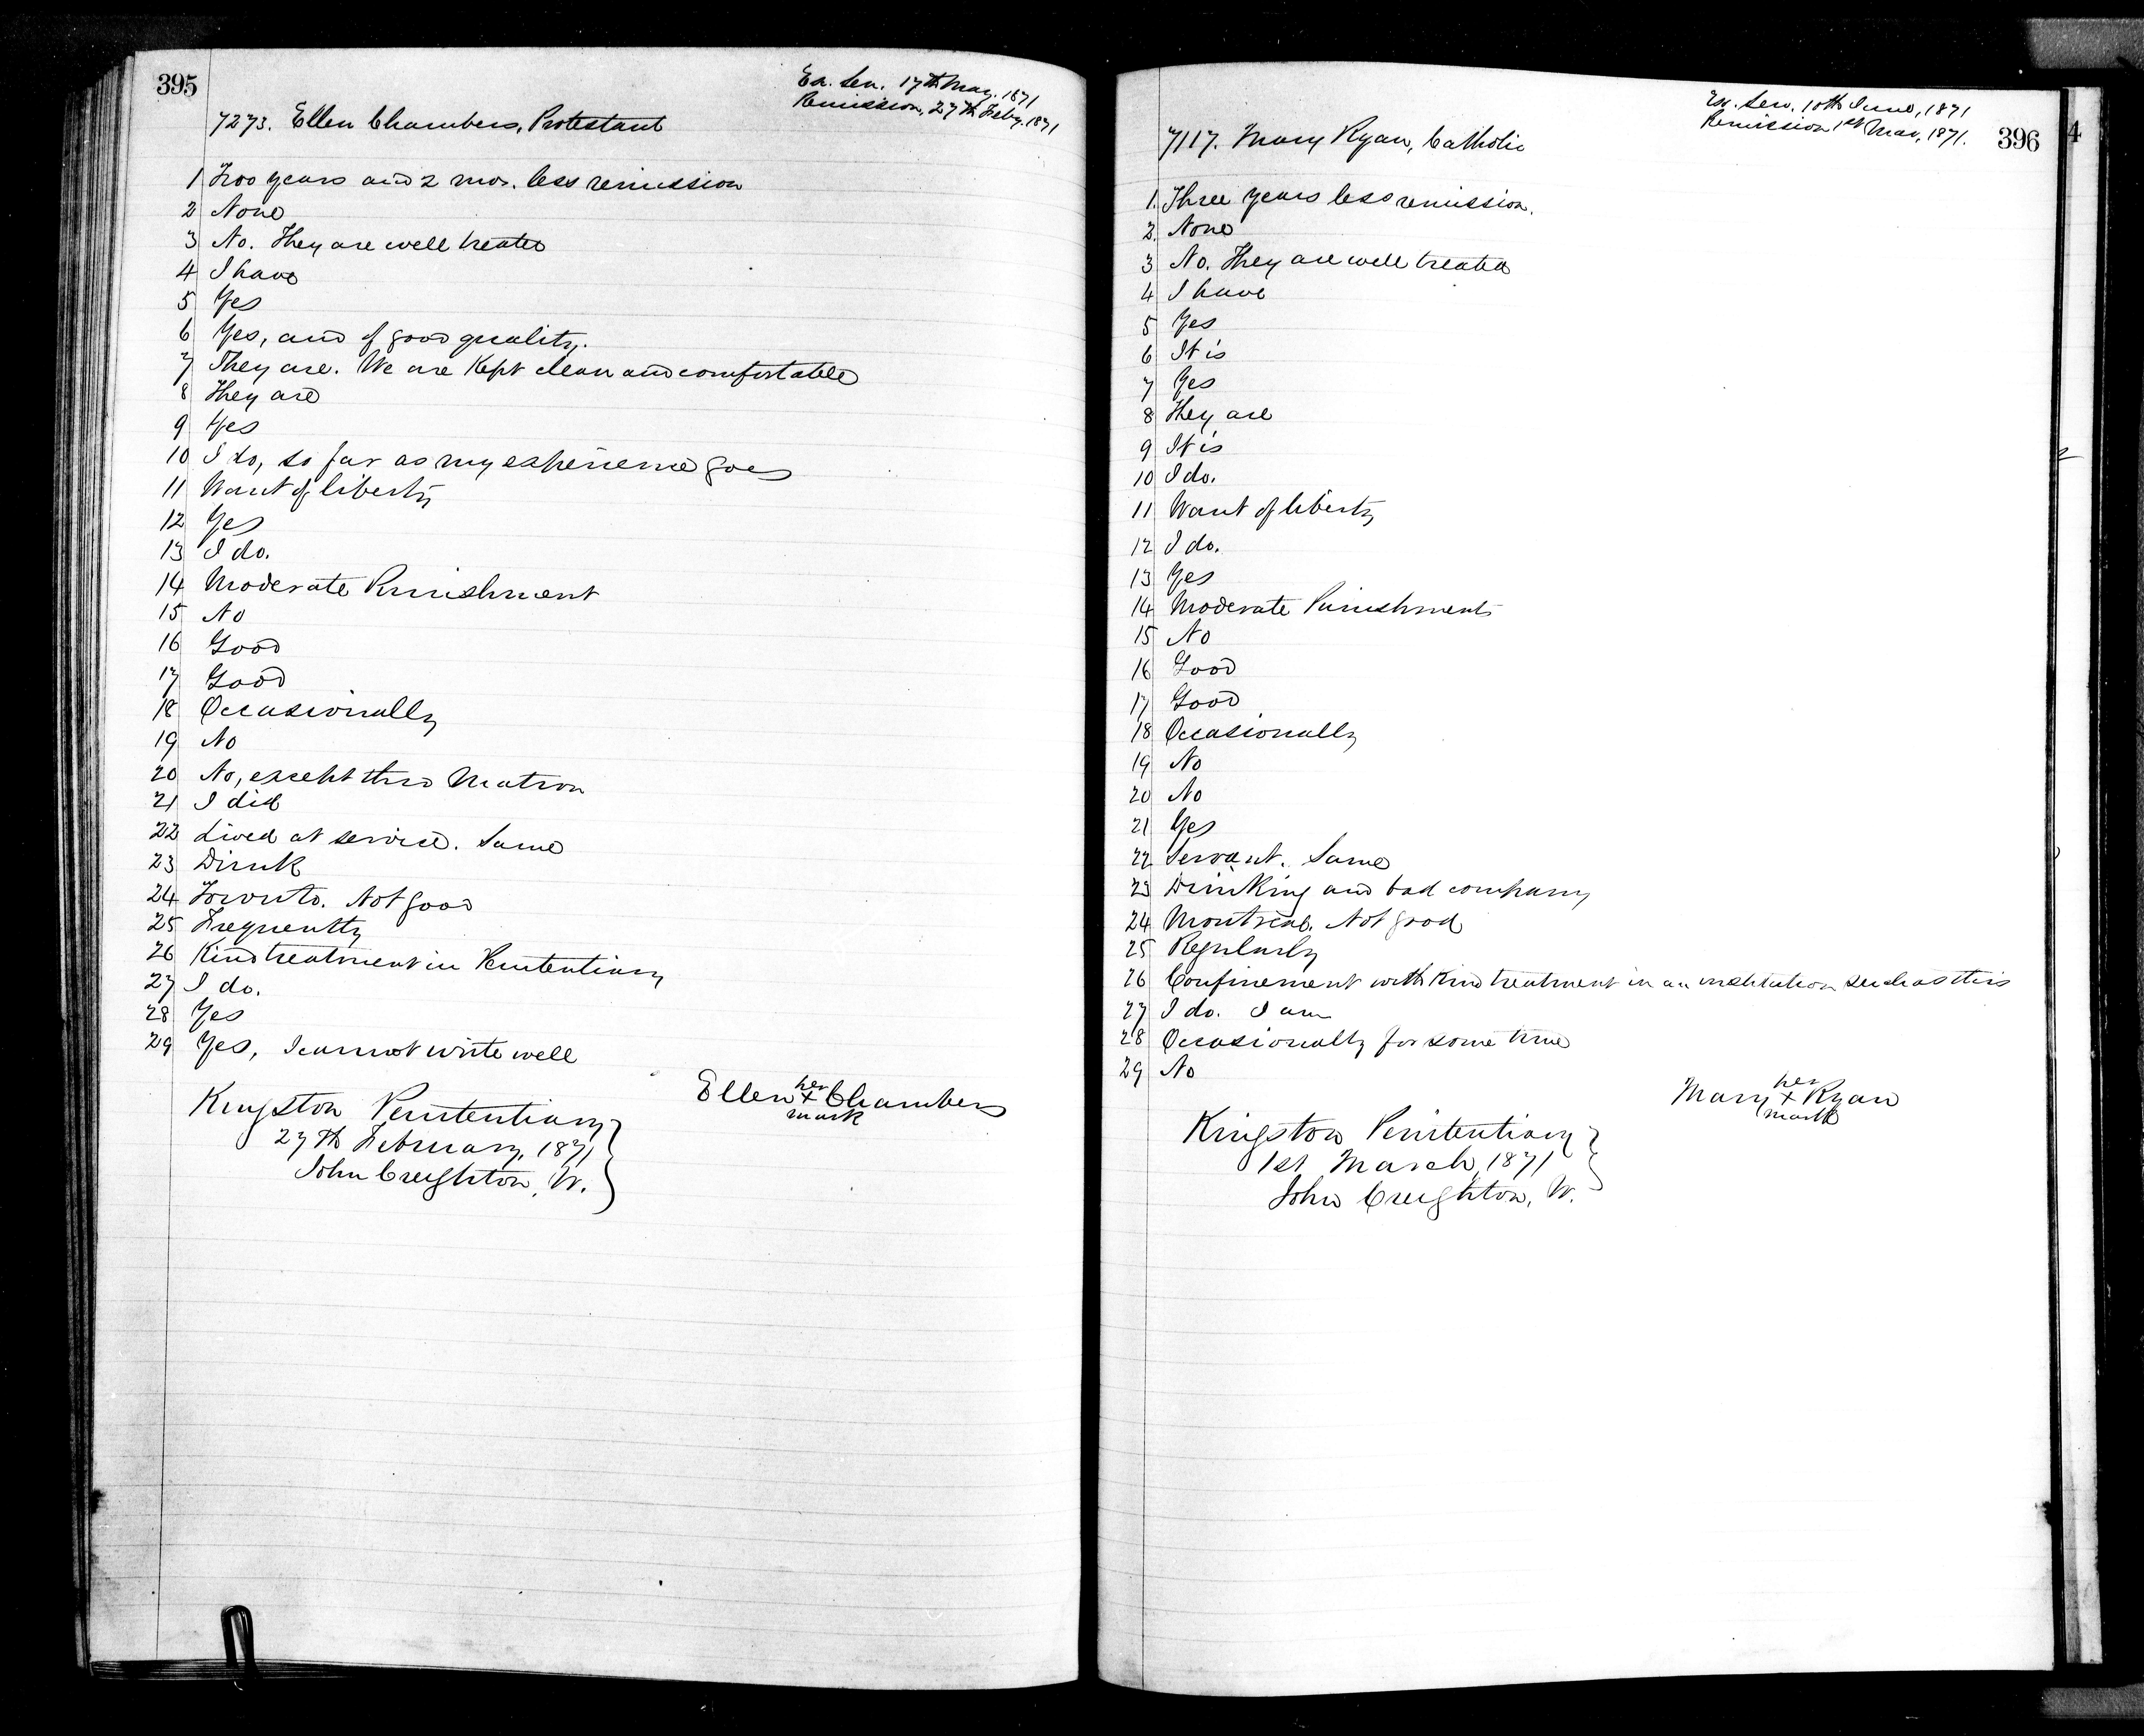 395
Ex. Sen. 17th May. 1871
Remission, 27th Feby. 1871
7273. Ellen Chambers, Protestant
1 Two years and 2 mos. less remission
2 None
3 No. They are well treated
4 I have
5 Yes
6 Yes, and of good quality.
7 They are. We are Kept clean and comfortable
8 They are
9 Yes
10 I do, so far as my experience goes
11 Want of liberty
12 Yes
13 I do.
14 Moderate Punishment
15 No
16 Good
17 Good
18 Occasionally
19 No
20 No, except thro Matron
21 I did
22 Lived at service. Same
23 Drink
24 Toronto. Not good
25 Frequently
26 Kind treatment in Penitentiary
27 I do.
28 Yes
29 Yes, I cannot write well
her
Ellen + Chambers
mark
Kingston Penitentiary
27th February, 1871
John Creighton, W.
396
Ex. Sen. 10th June, 1871
Remission 1st Mar, 1871.
7117. Mary Ryan, Catholic
1. Three years less remission.
2. None
3 No. They are well treated
4 I have
5 Yes
6 It is
7 Yes
8 They are
9 It is
10 I do.
11 Want of liberty
12 I do.
13 Yes
14 Moderate Punishment
15 No
16 Good
17 Good
18 Occasionally
19 No
20 No
21 Yes
22 Servant. Same
23 Drinking and bad company
24 Montreal. Not good
25 Regularly
26 Confinement with Kind treatment in an institution such as this
27 I do. I am
28 Occasionally for some time
29 No
her
Mary + Ryan
mark
Kingston Penitentiary
1st March, 1871
John Creighton, W.
4